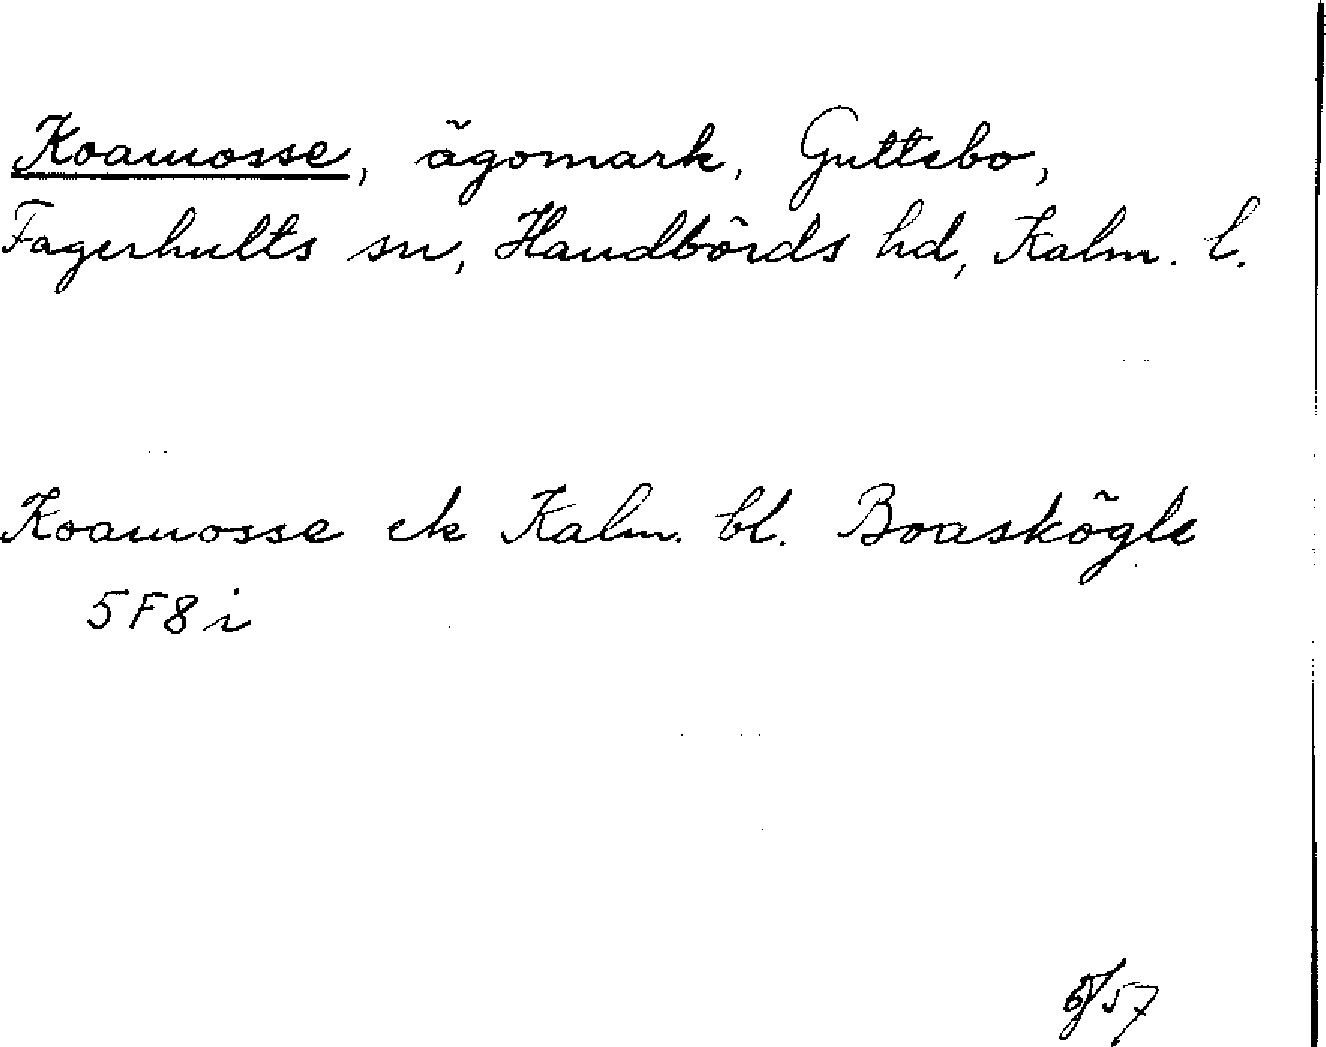 Koamosse, ägomark, Guttebo,
Fagerhults sn, Handbörds hd, Kalm. l.
Koamosse ek Kalm. bl. Boaskögle
5F8i